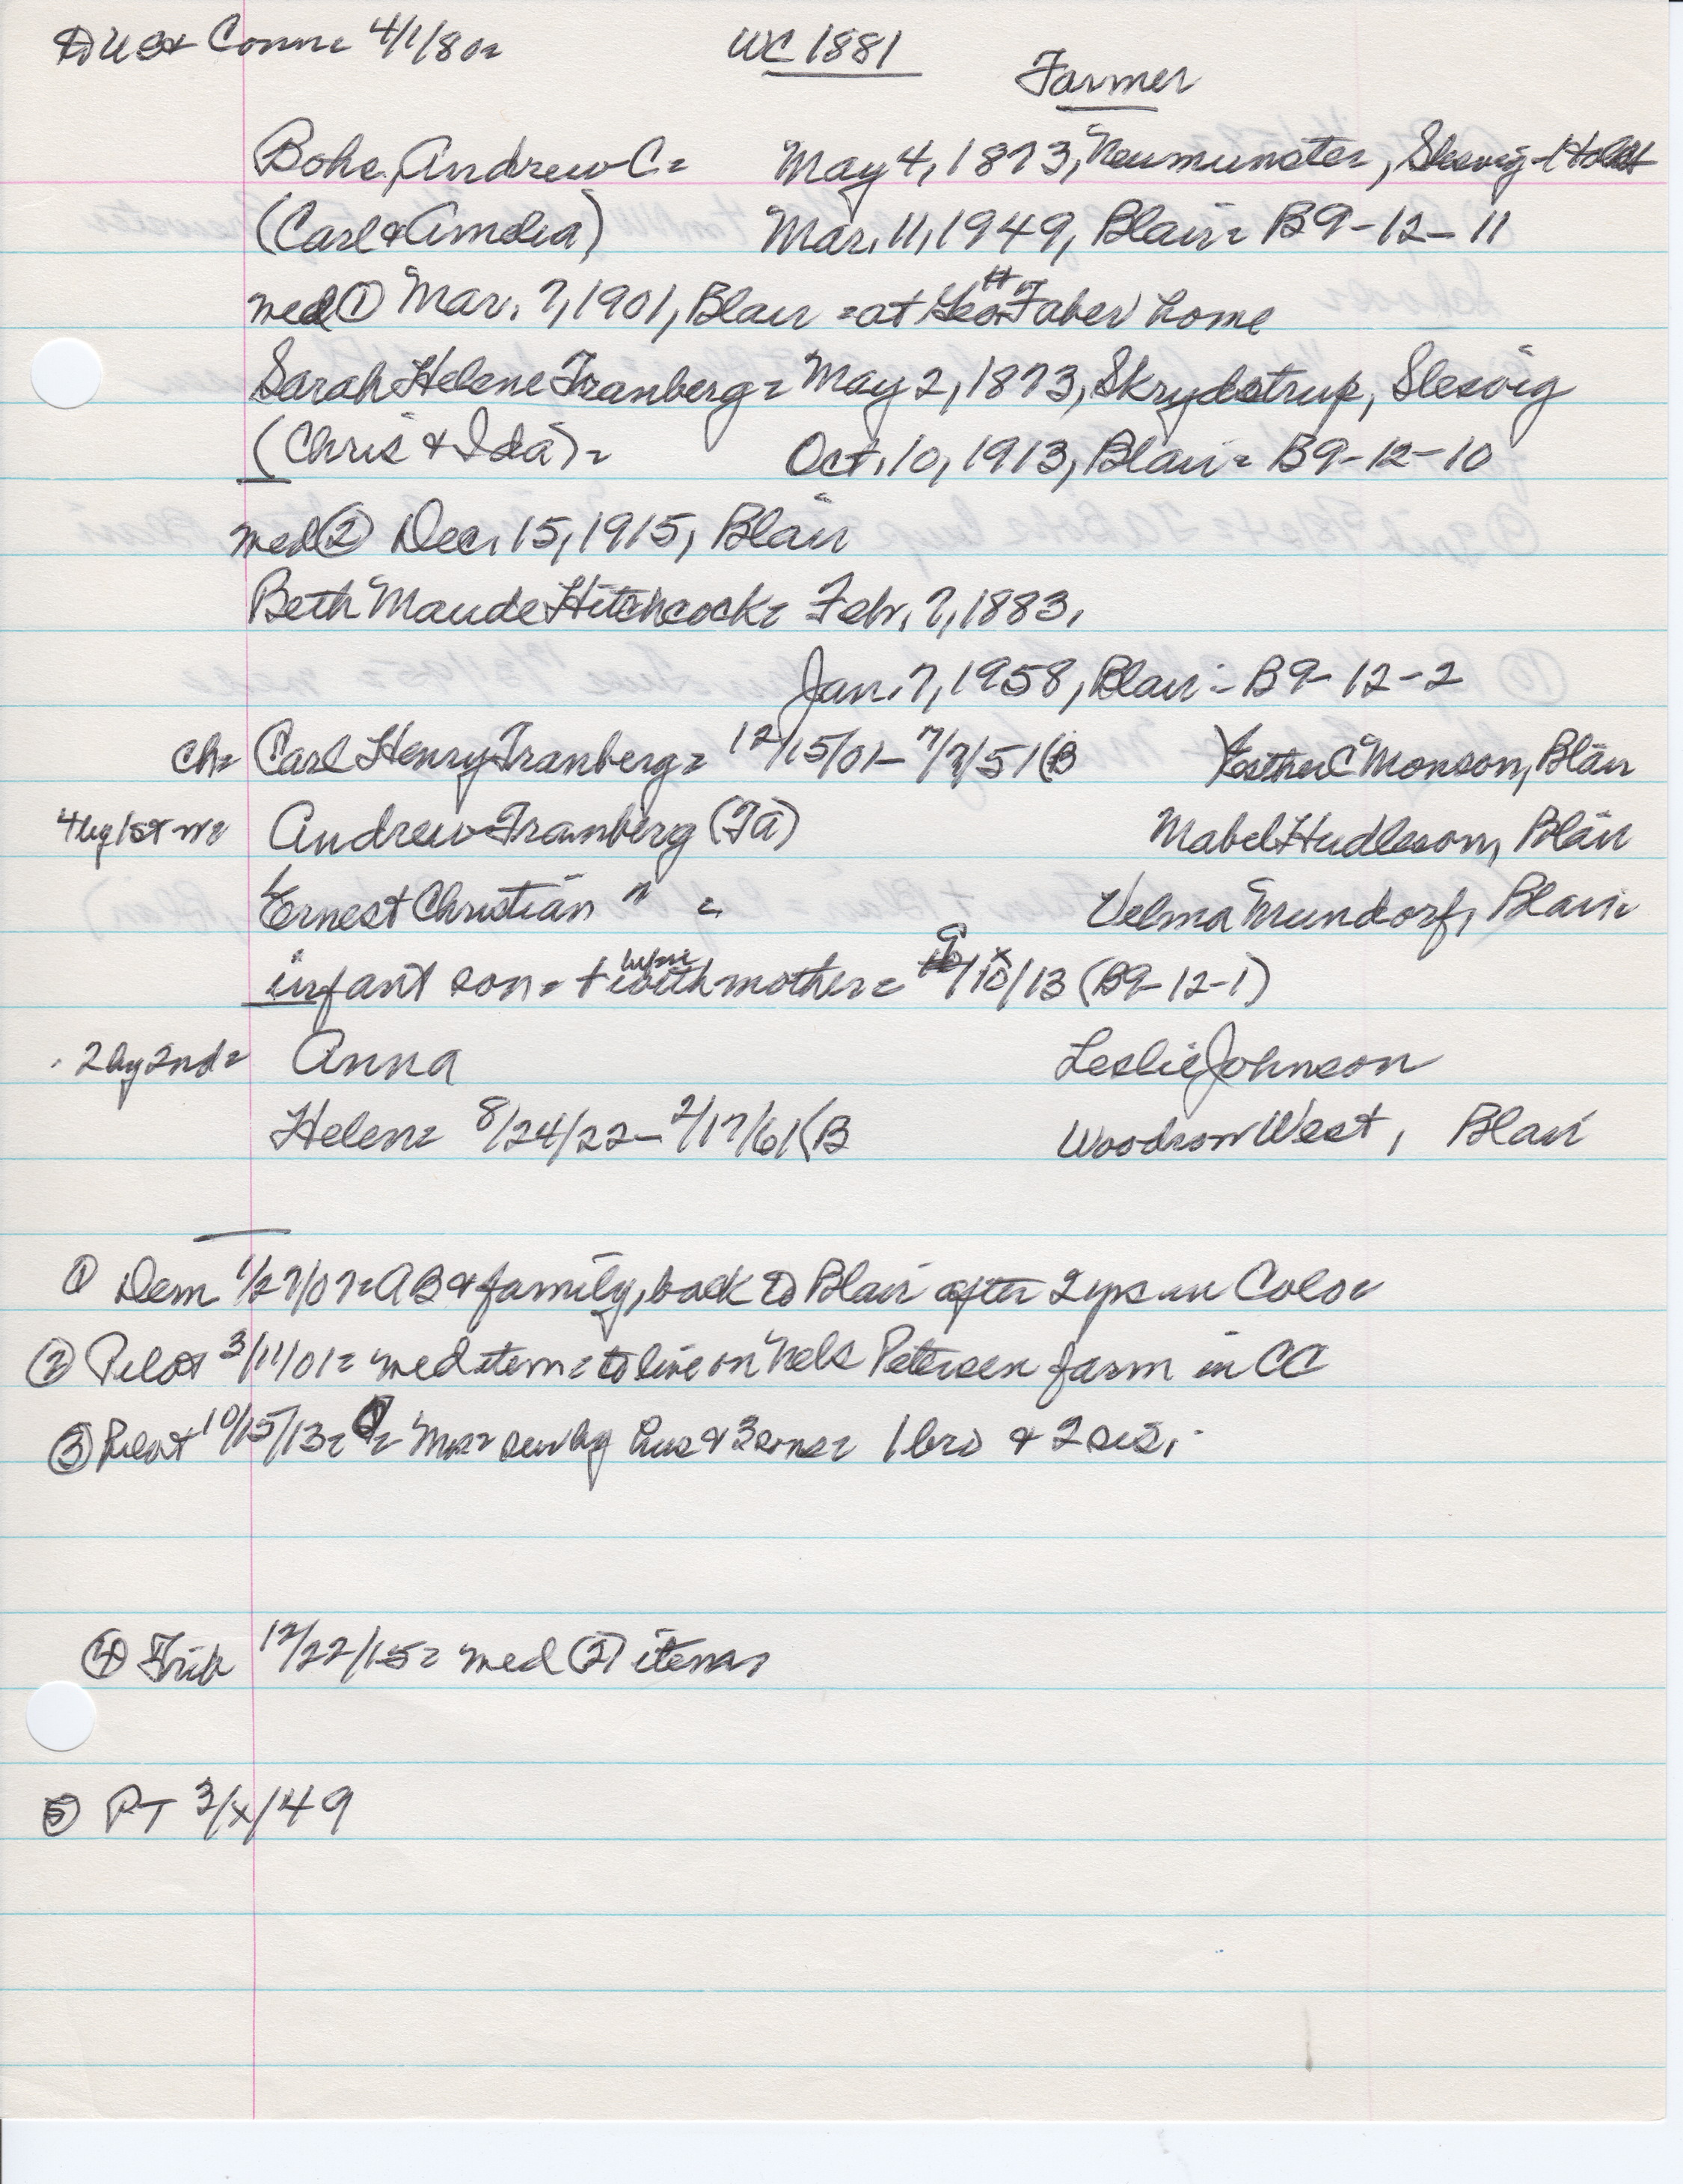 Conn = 4/1/80 =
WC 1881
Farmer
Bohs, Andrew C = May 4, 1873, Neumunster, Slesvig-Holst
(Carl & Amelia) Mar. 11, 1949, Blair = B9-12-11
med ① Mar. 7, 1901, Blair = at Faber home
Sarah Helene Tranberg = May 2, 1873, Skrydstrup, Slesvig
(Chris & Ida) = Oct. 10, 1913, Blair = B9-12-10
med ② Dec. 15, 1915, Blair
Beth Maude Hitchcock = Febr. 7, 1883,
Jan. 7, 1958, Blair = B9-12-2
ch = Carl Henry Tranberg = 12/15/01 - 7/7/51 (B Esther C Monson, Blair
4 by 1st m = Andrew Tranberg (Ia) Mabel Hudleson, Blair
Ernest Christian " = Velma Mundorf, Blair
infant son = + before mother = 9/10/13 (B9-12-1)
2 by 2nd = Anna Leslie Johnson
Helen = 8/24/22 - 2/17/61 (B Woodrow West, Blair
① Dem 1/27/07 = AB & family, back to Blair after 2 yrs in Colo =
② Pilot 3/11/01 = med item = to live on Nels Petersen farm in CC
③ Pilot 10/15/13 = = Mrs = surv by hus & 3 sons = 1 bro & 2 sis.
④ Trib 12/22/15 = med ② item
⑤ PT 3/x/49